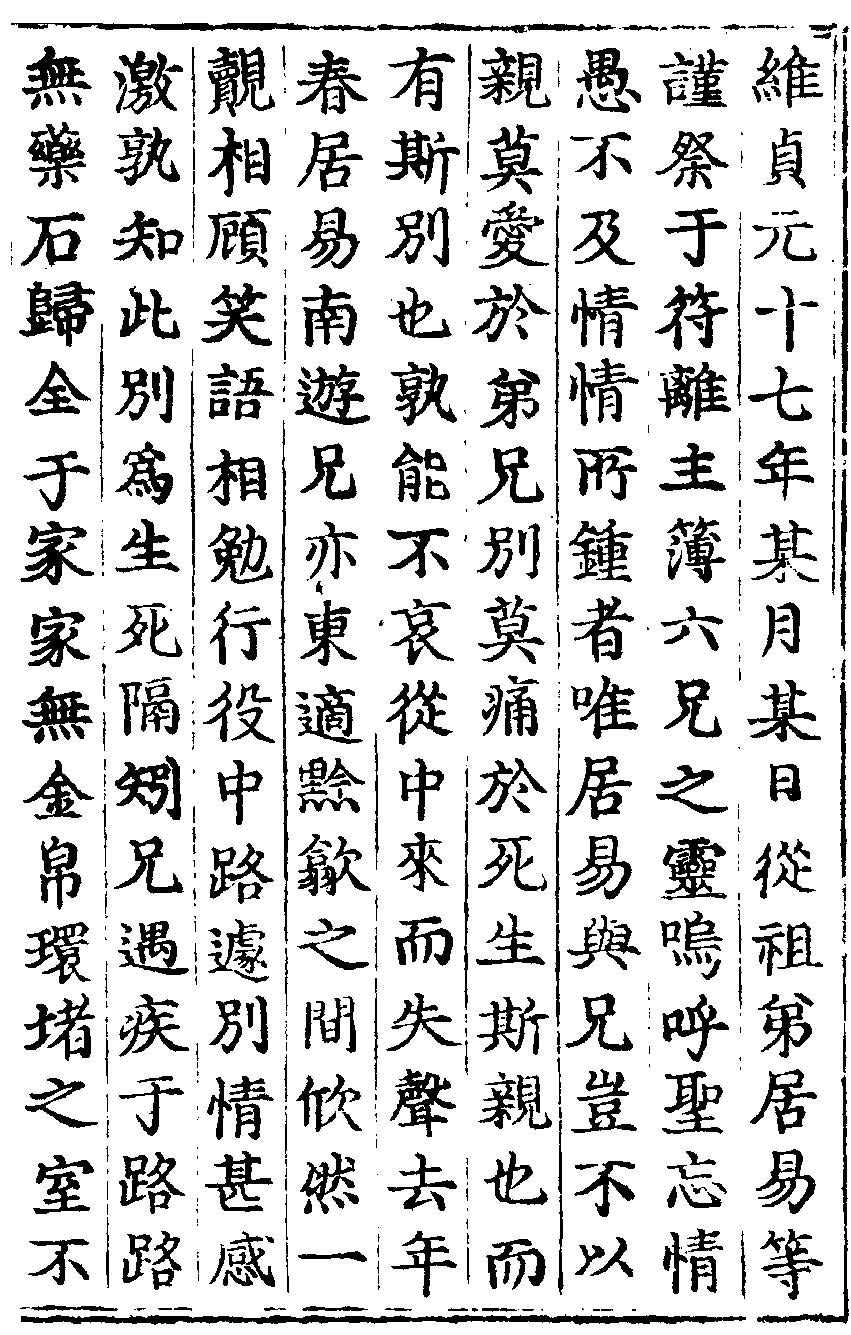 維貞元十七年某月某日從祖弟居易等
謹祭于符離主簿六兄之靈嗚呼聖忘情
愚不及情情所鍾者唯居易與兄豈不以
親莫愛於弟兄別莫痛於死生斯親也而
有斯別也孰能不哀從中來而失聲去年
春居易南遊兄亦東適黟歙之間欣然一
覿相顧笑語相勉行役中路遽別情甚感
激孰知此別爲生死隔矧兄遇疾于路路
無藥石歸全于家家無金帛環堵之室不